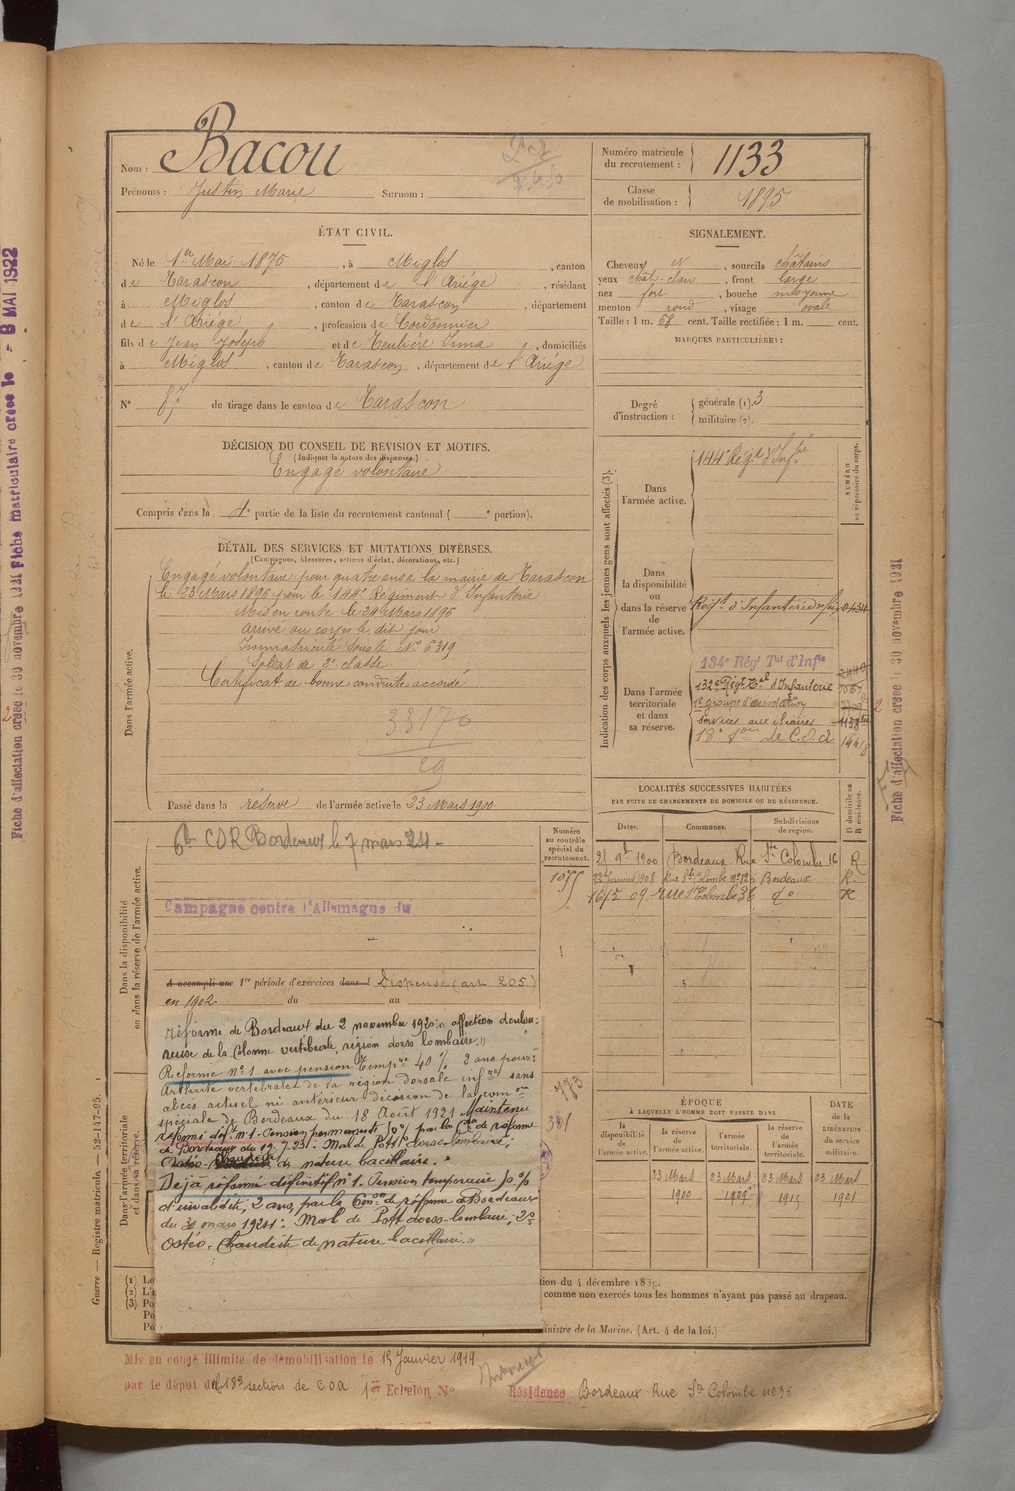 Nom : Bacou
Prénoms : Justin Marie Surnom :
Numéro matricule du recrutement : 1133
Classe de mobilisation : 1895
ÉTAT CIVIL.
Né le 1er Mai 1875, à Miglos, canton
de Tarascon, département de l'Ariége, résidant
à Miglos, canton de Tarascon, département
de l'Ariége, profession de Cordonnier
fils de Jean Joseph et de Teulière Irma, domiciliés
à Miglos, canton de Tarascon, département de l'Ariége
N° 87 de tirage dans le canton de Tarascon
SIGNALEMENT.
Cheveux N, sourcils châtains
yeux chât. clair, front large
nez fort, bouche moyenne
menton rond, visage ovale
Taille : 1 m. 68 cent. Taille rectifiée : 1 m. cent.
MARQUES PARTICULIÈRES :
Degré d'instruction : générale (1). 3
militaire (2).
DÉCISION DU CONSEIL DE REVISION ET MOTIFS.
(Indiquer la nature des dispenses.)
Engagé volontaire
Compris dans la 4e partie de la liste du recrutement cantonal ( e portion).
DÉTAIL DES SERVICES ET MUTATIONS DIVERSES.
(Campagnes, blessures, actions d'éclat, décorations, etc.)
Dans l'armée active.
Engagé volontaire pour quatre ans à la mairie de Tarascon
le 23 Mars 1896 pour le 144e Régiment d'Infanterie
Mis en route le 24 Mars 1896
Arrivé au corps le dit jour
Immatriculé sous le N° 6319
Soldat de 2e classe
Certificat de bonne conduite accordé
33170
29
Passé dans la réserve de l'armée active le 23 Mars 1900.
Indication des corps auxquels les jeunes gens sont affectés (3).
NUMÉRO au répertoire du corps.
Dans l'armée active.
144e Régt d'Infie
Dans la disponibilité ou dans la réserve de l'armée active.
Régt d'Infanterie
Dans l'armée territoriale et dans sa réserve.
134e Régt Tal d'Infie
132e Régt Tal d'Infanterie
1e groupe d'aérostation
Services auxiliaires
18e Son de C.O.A
LOCALITÉS SUCCESSIVES HABITÉES
PAR SUITE DE CHANGEMENTS DE DOMICILE OU DE RÉSIDENCE.
Dates. Communes. Subdivisions de région. D domicile ou R résidence.
21 9b 1900 Bordeaux Rue Ste Colombe 16 R
22 Janvier 1908 Rue Ste Colombe n° 12 Bordeaux R.
16/5 09 rue Ste Colombe 36 do R
Dans la disponibilité ou dans la réserve de l'armée active.
Numéro au contrôle spécial du recrutement.
CDR Bordeaux le 7 mars 24
Campagne contre l'Allemagne du
A accompli une 1re période d'exercices dans l Dispensé (art 205)
en 1902 du au
Dans l'armée territoriale et dans sa réserve.
réforme de Bordeaux du 2 novembre 1920: « affection doulou-
reuse de la Colonne vertébrale, région dorso lombaire. »
Réforme N° 1 avec pension tempre 40 % 2 ans pour:
Arthrite vertébrale de la région dorsale infre sans
abcès actuel ni antérieur décision de la comon
spéciale de Bordeaux du 18 Août 1921 Maintenu
réformé déf. N° 1. Pension permanente par la Con de réforme
de Bordeaux du 19.7.23. Mal de Pott dorso-lombaire,
de nature bacillaire. »
Déjà réformé définitif N° 1. Pension temporaire
d'invalidité, 2 ans, par la Comon de réforme de Bordeaux
du mars 1924: Mal de Pott dorso-lombaire; 2°
Ostéo. Chondrite de nature bacillaire. »
ÉPOQUE
À LAQUELLE L'HOMME DOIT PASSER DANS
la disponibilité de l'armée active. la réserve de l'armée active. l'armée territoriale. la réserve de l'armée territoriale.
DATE de la LIBÉRATION du service militaire.
23 Mars 1900
23 Mars 1909
23 Mars 1915
23 Mars 1921
tion du 4 décembre 1889.
comme non exercés tous les hommes n'ayant pas passé au drapeau.
inistre de la Marine. (Art. 4 de la loi.)
Mis en congé illimité de démobilisation le 15 Janvier 1919
par le dépôt de la 18e section de COA 1er Echelon N°
Résidence Bordeaux Rue Ste Colombe n° 36
Guerre — Registre matricule. — 52-147-95.
Fiche matriculaire créée le - 9 MAI 1922
Fiche d'affectation créée le 30 novembre 1921
Fiche d'affectation créée le 30 novembre 1921